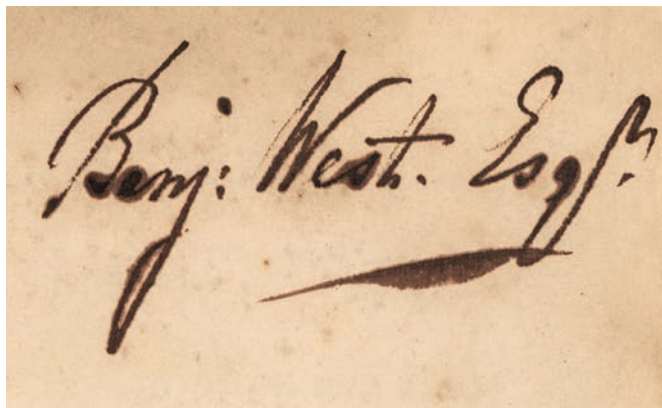 Benj: West. Esqr.